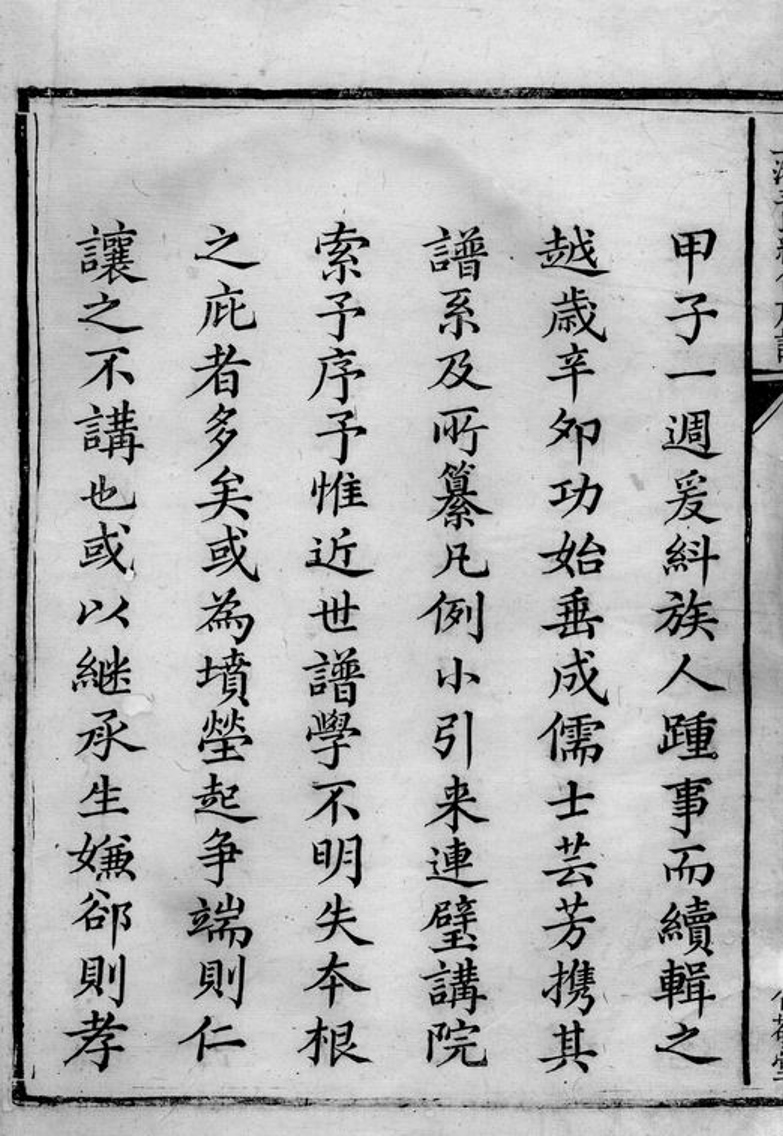 甲子一週爰紏族人踵事而續輯之
越歲辛夘功始垂成儒士芸芳携其
譜系及所纂凡例小引来連璧講院
索予序予惟近世譜學不明失本根
之庇者多矣或為墳塋起争端則仁
讓之不講也或以継承生嫌郤則孝